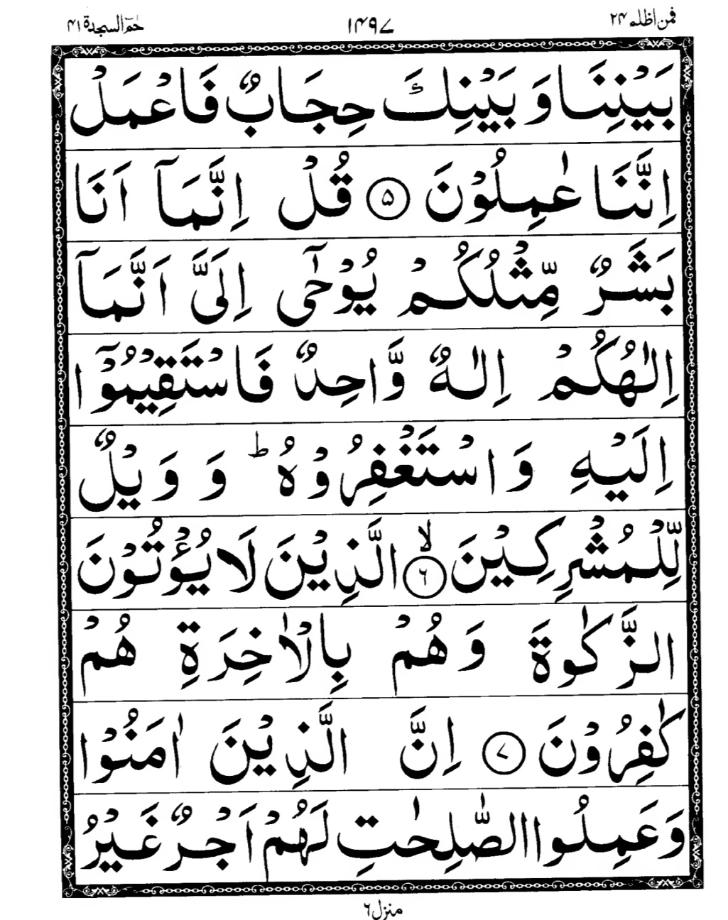 فمن اظلم ۲۴ ۱۴۹۷ حٰمٓ السجدة ۴۱
بَيْنِنَا وَ بَيْنِكَ حِجَابٌ فَاعْمَلْ
اِنَّنَا عٰمِلُوْنَ ۵ قُلْ اِنَّمَاۤ اَنَا
بَشَرٌ مِّثْلُكُمْ يُوْحٰۤى اِلَىَّ اَنَّمَاۤ
اِلٰهُكُمْ اِلٰهٌ وَّاحِدٌ فَاسْتَقِيْمُوْۤا
اِلَيْهِ وَ اسْتَغْفِرُوْهُ ؕ وَ وَيْلٌ
لِّلْمُشْرِكِيْنَ ۙ ۶ الَّذِيْنَ لَا يُؤْتُوْنَ
الزَّكٰوةَ وَ هُمْ بِالْاٰخِرَةِ هُمْ
كٰفِرُوْنَ ۷ اِنَّ الَّذِيْنَ اٰمَنُوْا
وَ عَمِلُوا الصّٰلِحٰتِ لَهُمْ اَجْرٌ غَيْرُ
منزل ۶